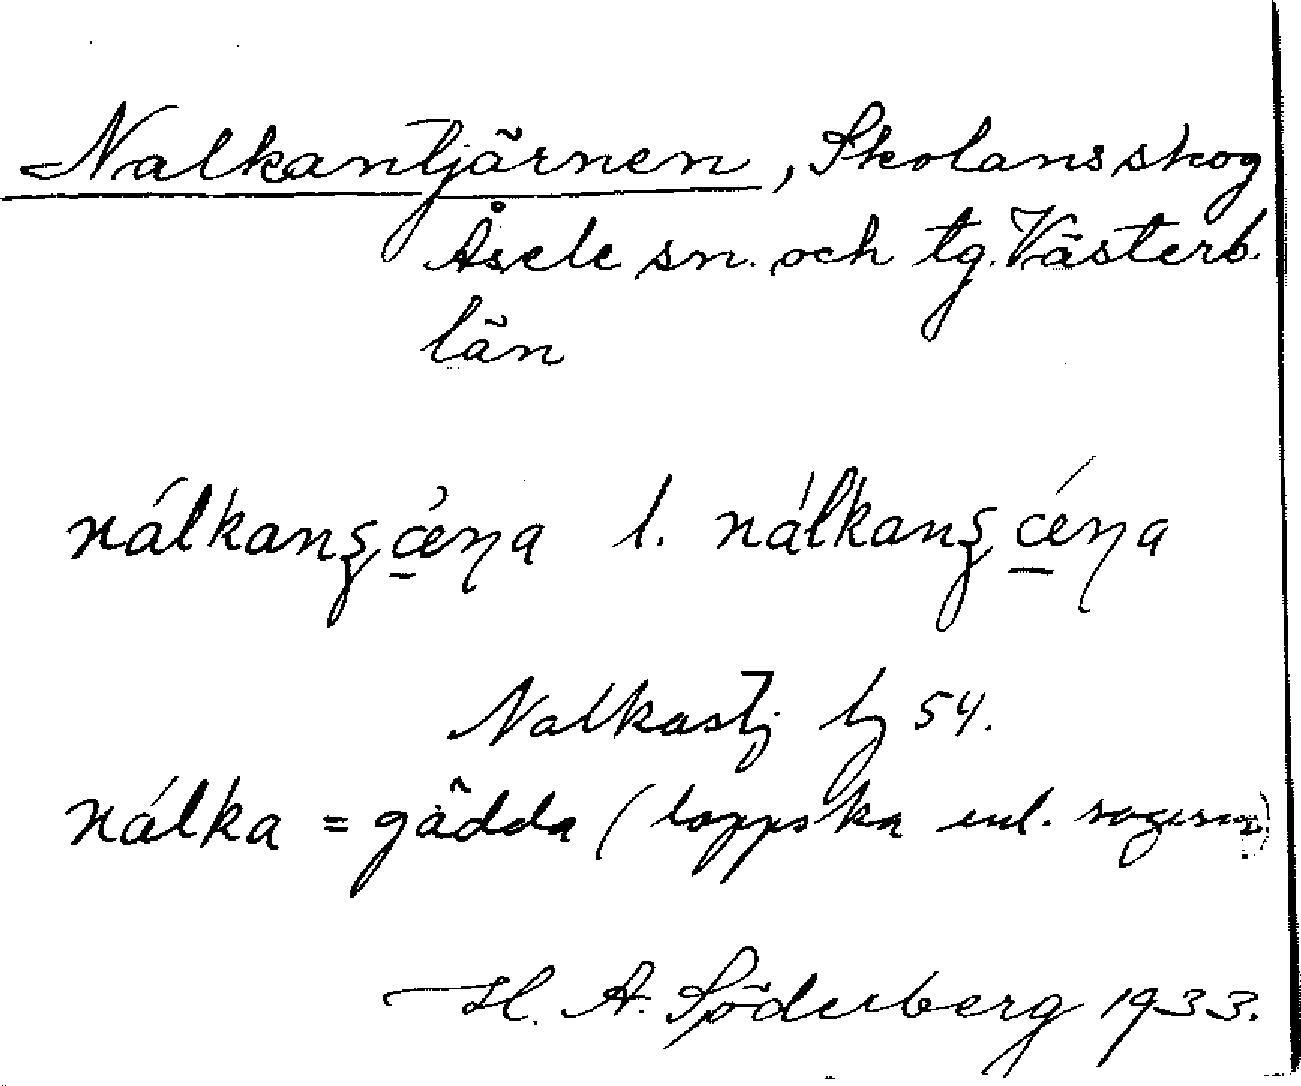 Nalkantjärnen, Skolans skog
Åsele sn. och tg. Västerb.
län
nálkanş c̲éŋa l. nálkanş c̲éŋa
Nalkastj 54.
nálka = gädda (lappska enl. sagesm)
H. A. Söderberg 1933.